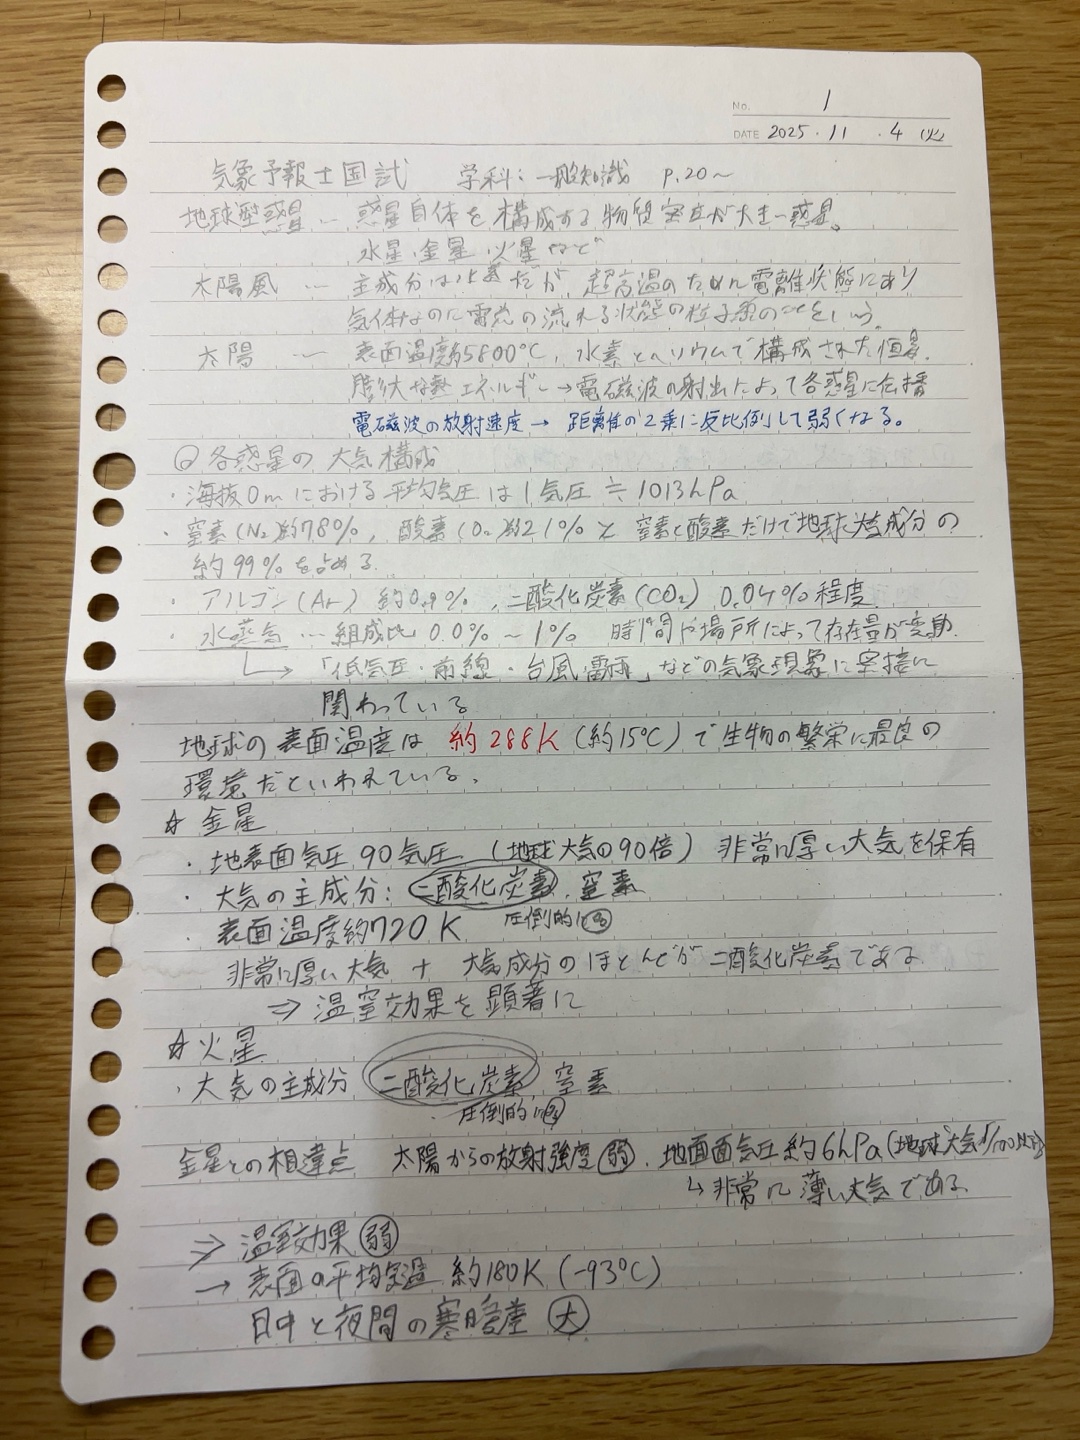 No. 1
DATE 2025・11・4 (火)
気象予報士国試 学科:一般知識 P.20〜
地球型惑星 … 惑星自体を構成する物質密度が大きい惑星。
水星、金星、火星など
太陽風 … 主成分は水素だが、超高温のために電離状態にあり
気体なのに電気の流れる状態の粒子流のことをいう。
太陽 … 表面温度約5800℃、水素とヘリウムで構成された恒星。
膨大な熱エネルギー→電磁波の射出によって各惑星に伝播
電磁波の放射速度 → 距離の2乗に反比例して弱くなる。
◎各惑星の大気構成
・海抜0mにおける平均気圧は1気圧≒1013hPa
・窒素(N₂)約78%、酸素(O₂)約21%と 窒素と酸素だけで地球大気成分の
約99%を占める
・アルゴン(Ar) 約0.9%、二酸化炭素(CO₂) 0.04%程度
・水蒸気 … 組成比 0.0%〜1% 時間や場所によって存在量が変動
→「低気圧・前線・台風・雷雨」などの気象現象に密接に
関わっている
地球の表面温度は 約288K(約15℃)で生物の繁栄に最良の
環境だといわれている。
☆ 金星
・地表面気圧90気圧 (地球大気の90倍) 非常に厚い大気を保有
・大気の主成分:二酸化炭素、窒素
圧倒的に多
・表面温度約720K
非常に厚い大気 + 大気成分のほとんどが二酸化炭素である
⇒ 温室効果を顕著に
☆ 火星
・大気の主成分 二酸化炭素、窒素
圧倒的に多
金星との相違点 太陽からの放射強度弱、地面面気圧約6hPa(地球大気1/100以下)
↳ 非常に薄い大気である
⇒ 温室効果弱
→ 表面の平均気温 約180K(-93℃)
日中と夜間の寒暖差 大